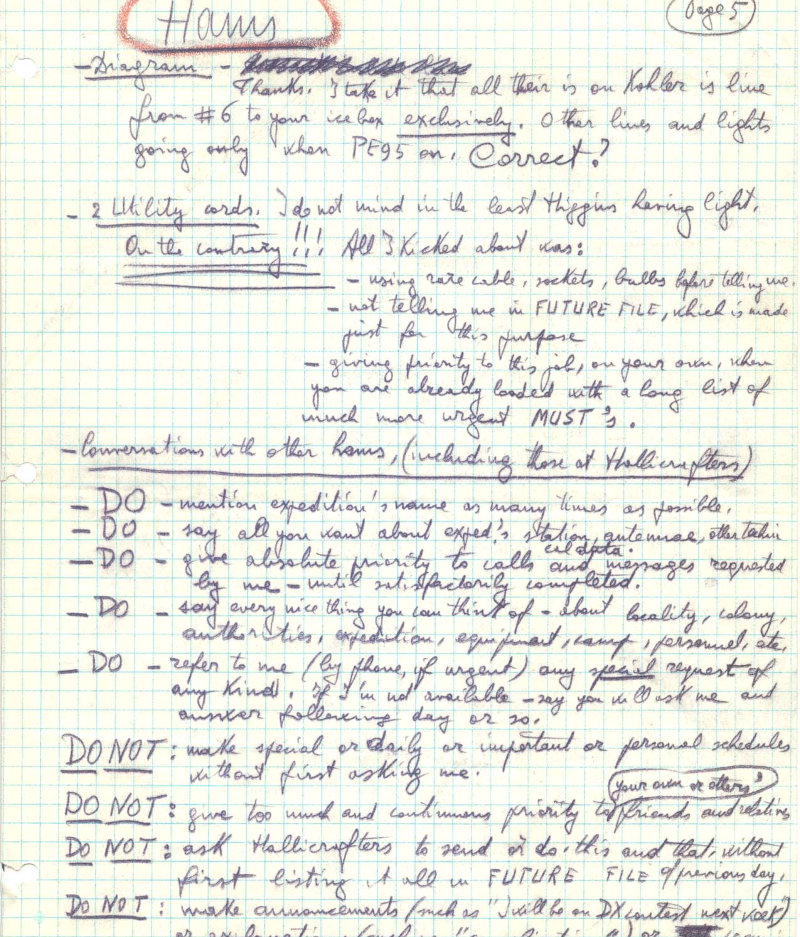 Hams
Page 5
- Diagram -
Thanks. I take it that all their is on Kohler is line
from #6 to your ice box exclusively. Other lines and lights
going only when PE95 on. Correct?
- 2 Utility cords. I do not mind in the least Higgins having light.
On the contrary!!! All I kicked about was:
- using rare cable, sockets, bulbs before telling me.
- not telling me in FUTURE FILE, which is made
just for this purpose
- giving priority to this job, on your own, when
you are already loaded with a long list of
much more urgent MUST's.
- Conversations with other hams, (including those at Hallicrafters)
- DO - mention expedition's name as many times as possible.
- DO - say all you want about exped.'s station, antennae, other techni
cal data.
- DO - give absolute priority to calls and messages requested
by me - until satisfactorily completed.
- DO - say every nice thing you can think of - about locality, colony,
authorities, expedition, equipment, camp, personnel, etc.
- DO - refer to me (by phone, if urgent) any special request of
any kind. If I'm not available - say you will ask me and
answer following day or so.
DO NOT: make special or daily or important or personal schedules
without first asking me.
your own or others'
DO NOT: give too much and continuous priority to friends and relatives
DO NOT: ask Hallicrafters to send or do this and that, without
first listing it all in FUTURE FILE of previous day.
DO NOT: make announcements (such as "I will be on DX contest next week")